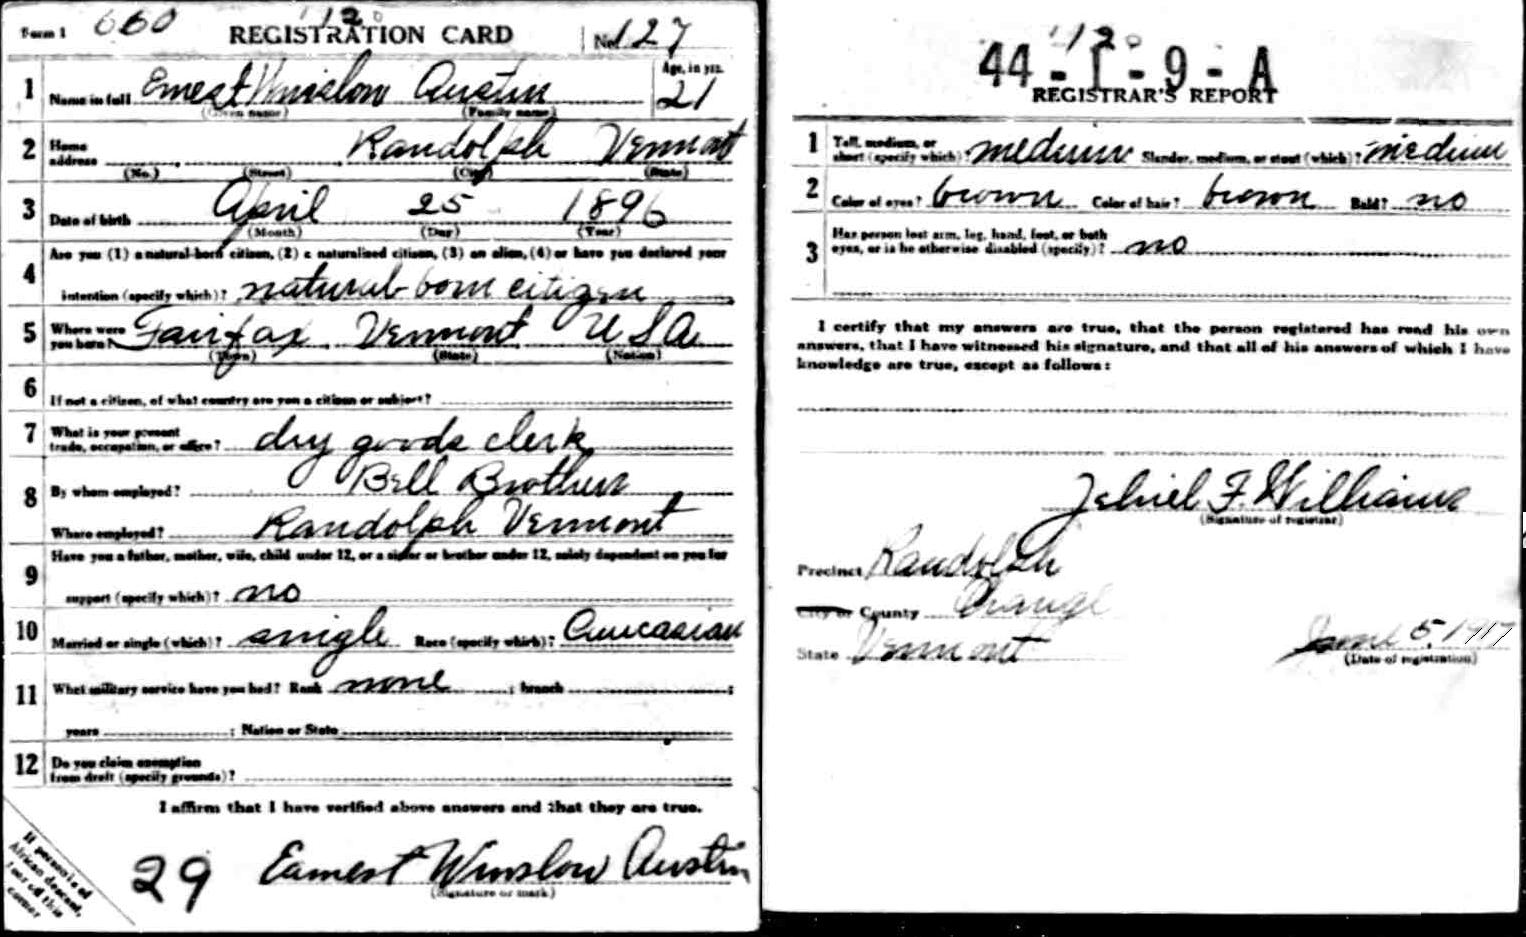 Form 1 660 REGISTRATION CARD No. 127
12
1 Name in full Ernest Winslow Austin Age, in yrs. 21
(Given name) (Family name)
2 Home address Randolph Vermont
(No.) (Street) (City) (State)
3 Date of birth April 25 1896
(Month) (Day) (Year)
4 Are you (1) a natural-born citizen, (2) a naturalized citizen, (3) an alien, (4) or have you declared your
intention (specify which)? natural born citizen
5 Where were you born? Fairfax Vermont USA
(Town) (State) (Nation)
6 If not a citizen, of what country are you a citizen or subject?
7 What is your present trade, occupation, or office? dry goods clerk
8 By whom employed? Bell Brothers
Where employed? Randolph Vermont
9 Have you a father, mother, wife, child under 12, or a sister or brother under 12, solely dependent on you for
support (specify which)? no
10 Married or single (which)? single Race (specify which)? Caucasian
11 What military service have you had? Rank none ; branch ;
years ; Nation or State
12 Do you claim exemption from draft (specify grounds)?
I affirm that I have verified above answers and that they are true.
29 Earnest Winslow Austin
(Signature or mark)
If person is of African descent, tear off this corner
12
44-1-9-A
REGISTRAR'S REPORT
1 Tall, medium, or short (specify which)? medium Slender, medium, or stout (which)? medium
2 Color of eyes? brown Color of hair? brown Bald? no
3 Has person lost arm, leg, hand, foot, or both
eyes, or is he otherwise disabled (specify)? no
I certify that my answers are true, that the person registered has read his own
answers, that I have witnessed his signature, and that all of his answers of which I have
knowledge are true, except as follows:
Jehiel F. Williams
(Signature of registrar)
Precinct Randolph
City or County Orange
State Vermont June 5, 1917
(Date of registration)